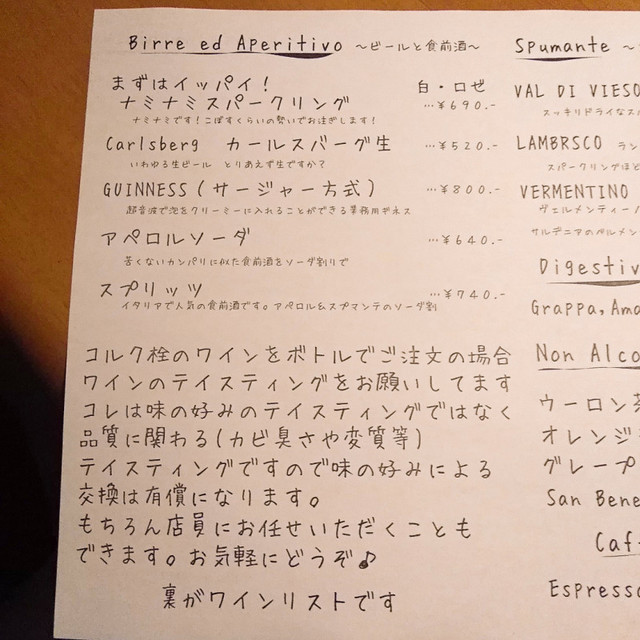 Birre ed Aperitivo ～ビールと食前酒～
まずはイッパイ！ 白・ロゼ
ナミナミスパークリング …￥690.-
ナミナミです！こぼすくらいの勢いでお注ぎします！
Carlsberg カールスバーグ生 …￥520.-
いわゆる生ビール とりあえず生ですか？
GUINNESS(サージャー方式) …￥800.-
超音波で泡をクリーミーに入れることができる業務用ギネス
アペロルソーダ …￥640.-
苦くないカンパリに似た食前酒をソーダ割りで
スプリッツ …￥740.-
イタリアで人気の食前酒です。アペロル&スプマンテのソーダ割
コルク栓のワインをボトルでご注文の場合
ワインのテイスティングをお願いしてます
コレは味の好みのテイスティングではなく
品質に関わる(カビ臭さや変質等)
テイスティングですので味の好みによる
交換は有償になります。
もちろん店員にお任せいただくことも
できます。お気軽にどうぞ♪
裏がワインリストです
Spumante ～
VAL DI VIESO
スッキリドライなス
LAMBRSCO ラン
スパークリングほど
VERMENTINO
ヴェルメンティーノ
サルデニアのベルメン
Digestiv
Grappa, Ama
Non Alco
ウーロン茶
オレンジ
グレープ
San Bene
Caf
Espresso